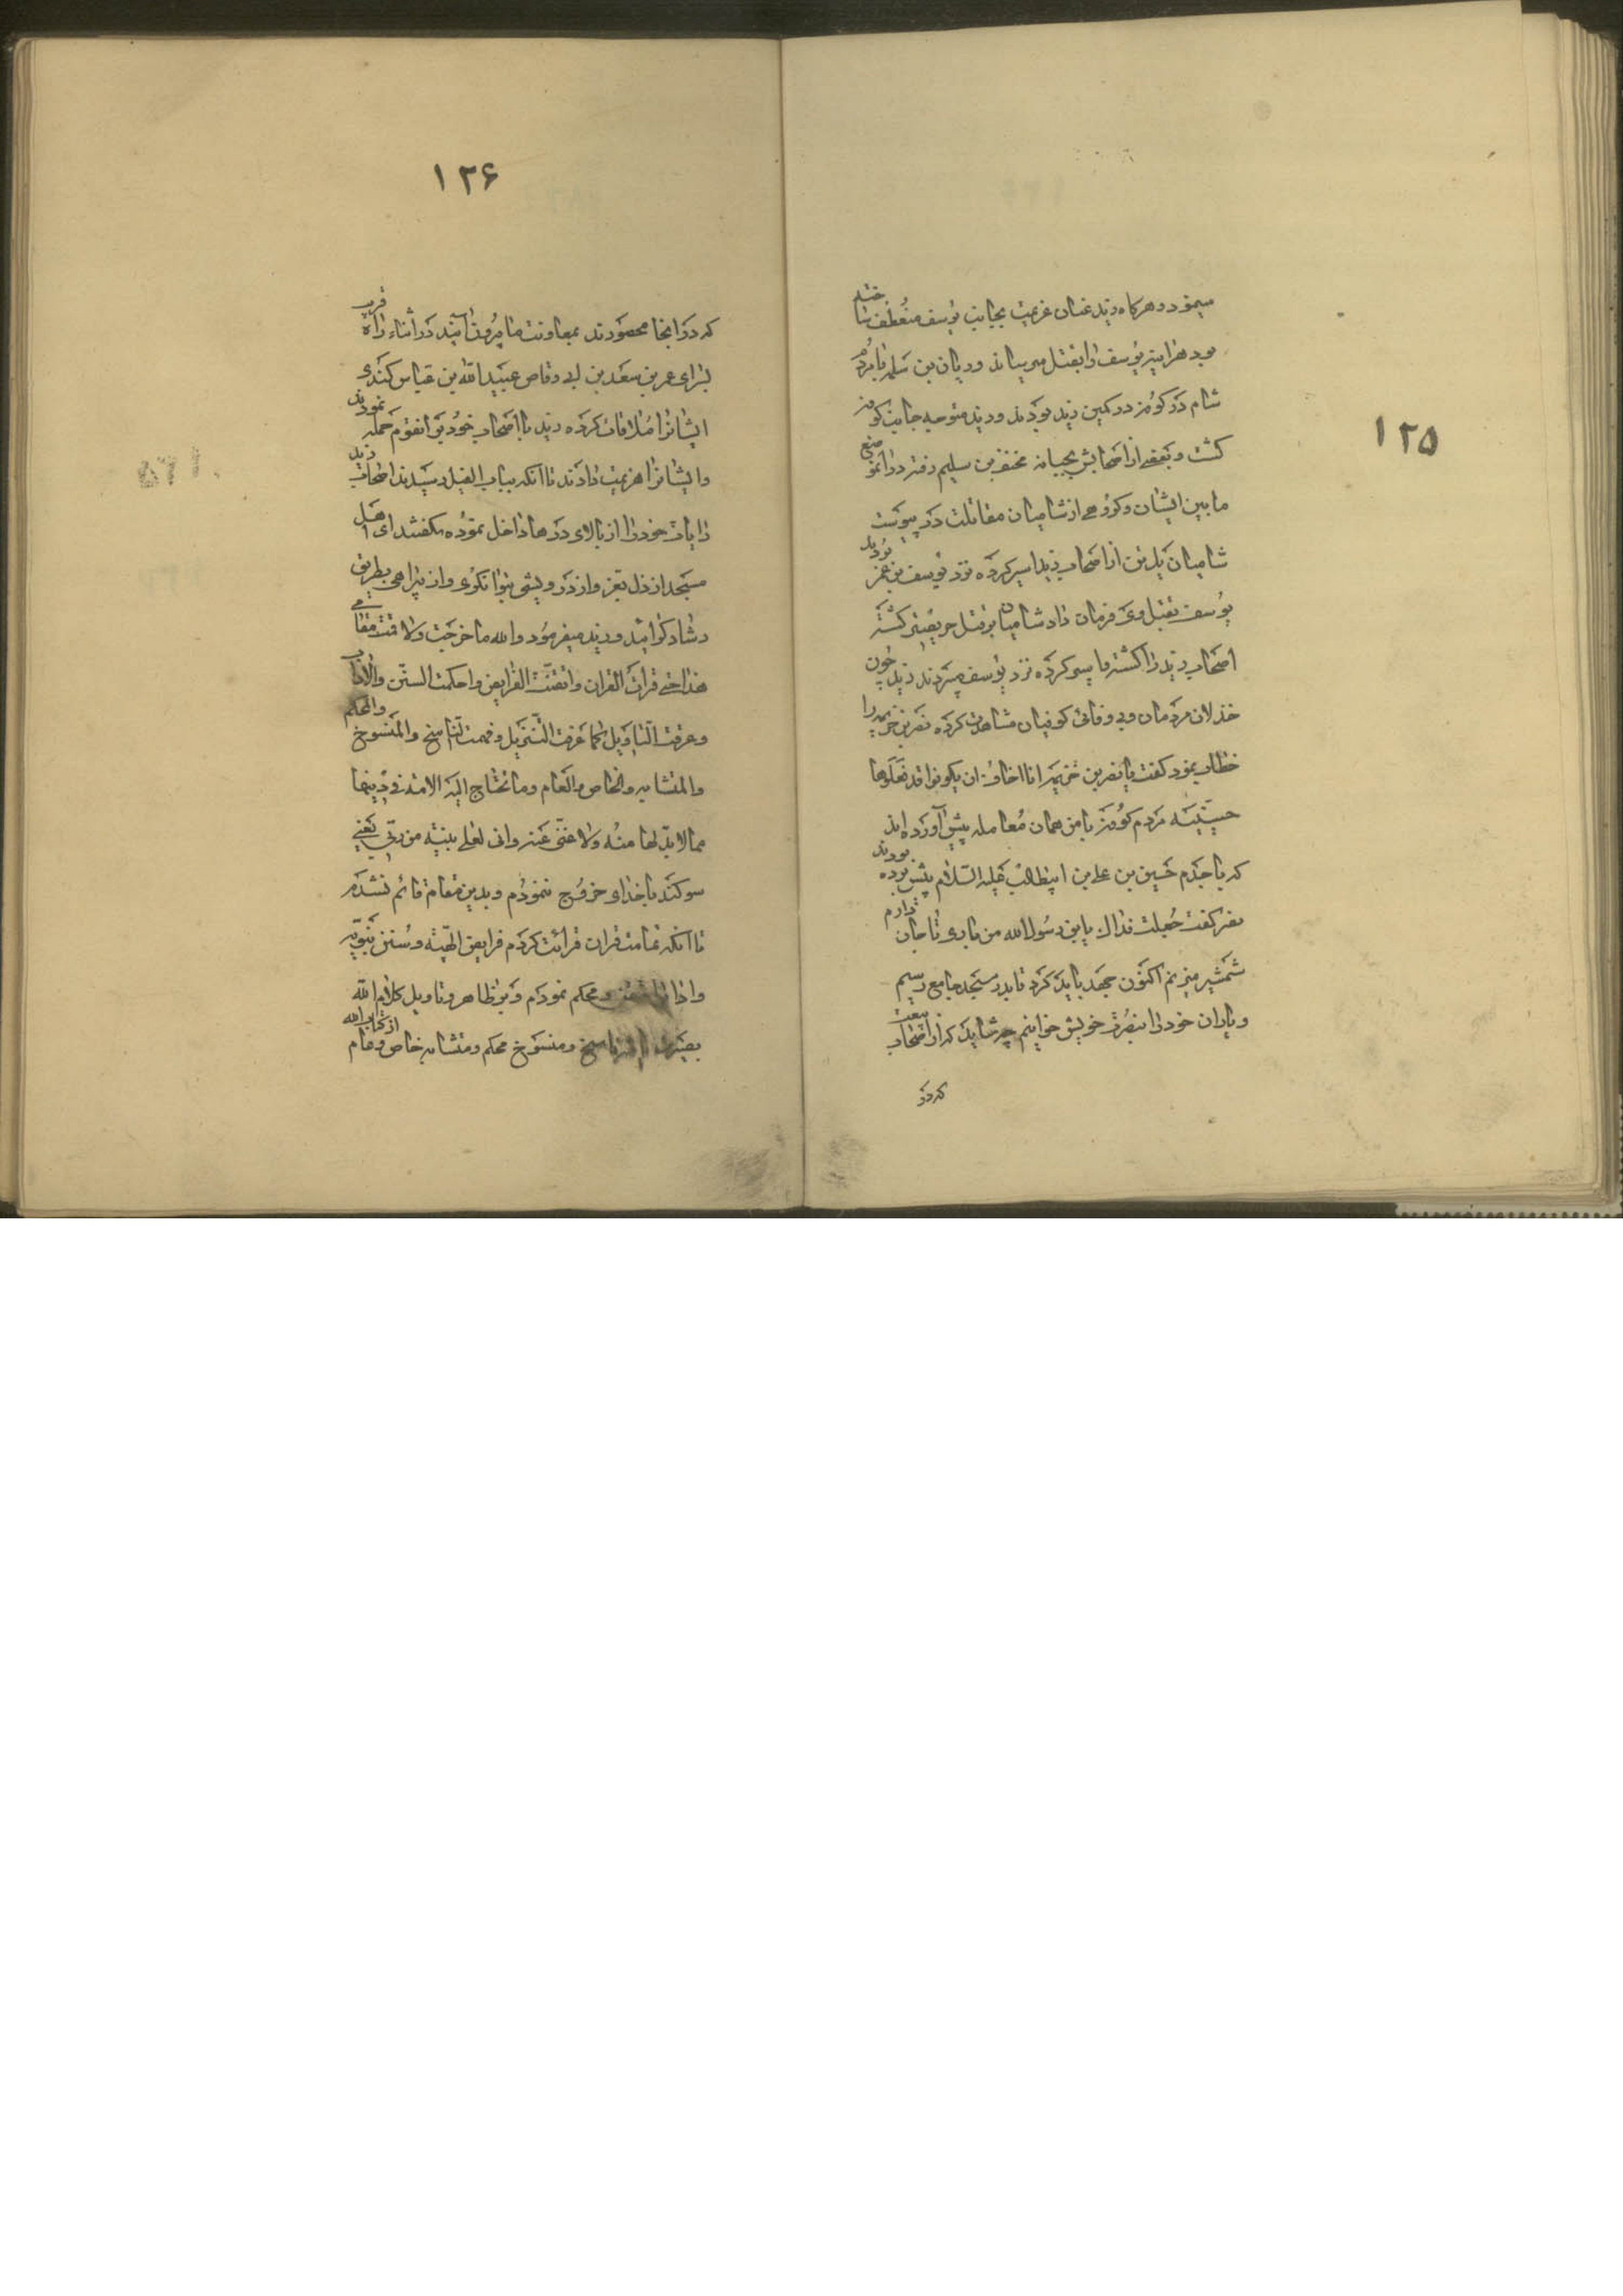 ۱۲۵
مینمود و هرگاه زید عنان عزیمت بجانب یوسف منعطف ساختی
هر اینه یوسف را بقتل میرسانند و ریان بن سلمه با مردم
شام در کوفه در کمین زید بودند و زید متوجه جانب کوفه
گشت و بعضی از اصحابش بجبانه مخنف بن سلیم رفته
ما بین ایشان و گروهی از شامیان مقاتلت در پیوست
شامیان یک تن از اصحاب زید اسیر کرده نزد یوسف بن عمر بردند
یوسف بقتل وی فرمان داد شامیان بر قتل حریص گشته
اصحاب زید را کشته و اسیر کرده نزد یوسف میبردند زید چون
خذلان مردمان و بی وفائی کوفیان مشاهدت کرده نصر بن خزیمه را
خطاب نمود گفت یا نصر بن خزیمه انا اخاف ان یکونوا قد فعلوها
حسینیه مردم کوفه با من همان معامله پیش آورده اند
که با جدم حسین بن علی بن ابیطالب علیه السلام پیش برده بودند
نصر گفت جعلت فداک یابن رسول الله من باری تا جان دارم
شمشیر میزنم اکنون جهد باید کرد تا بدر مسجد جامع رسیم
و یاران خود را بنصرت خویش خوانیم چه شاید که از اصحاب بیعت
که در
۱۲۶
که در انجا محصورند بمعاونت ما بیرون آیند در اثناء راه قرب
سرای عمر بن سعد بن ابی وقاص عبیدالله بن عباس کندی
ایشانرا ملاقات کرده زید با اصحاب خود بر انقوم حمله نمودند
و ایشانرا هزیمت دادند تا انکه بباب الفیل رسیدند اصحاب زید
رایات خود را از بالای درها داخل نموده میگفتند ای اهل
مسجد از ذل بعز و از درویشی بتوانگری و از بیراهی بطریق
رشاد گرائید و زید میفرمود والله ما خرجت ولا قمت مقامی
هذا حتی قرات القران واتقنت الفرایض واحکمت السنن والاداب
وعرفت التاویل کما عرفت التنزیل وفهمت الناسخ والمنسوخ والمحکم
والمتشابه والخاص والعام وما تحتاج الیه الامة فی دینها
مما لابد لها منه ولا غنی عنه وانی لعلی بینة من ربی یعنی
سوگند با خدای خروج ننمودم و بدین مقام قائم نشدم
تا آنکه تمامت قران قرائت کردم فرایض الهیه و سنن نبویه
و اداب را متقن و محکم نمودم و بر ظاهر و تاویل کلام الله
ناسخ و منسوخ محکم و متشابه خاص و عام از کتاب الله